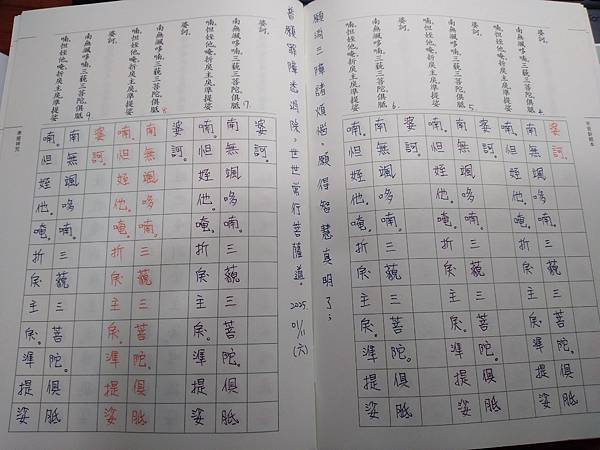 婆訶。
南無颯哆喃，三藐三菩陀，俱胝
4.
喃，怛姪他，唵，折戾主戾，準提娑
婆訶。
南無颯哆喃，三藐三菩陀，俱胝
5.
喃，怛姪他，唵，折戾主戾，準提娑
婆訶。
南無颯哆喃，三藐三菩陀，俱胝
6.
喃，怛姪他，唵，折戾主戾，準提娑
婆訶。
南無颯哆喃。三藐三菩陀。俱胝
喃。怛姪他。唵。折戾主戾。準提娑
婆訶。
南無颯哆喃。三藐三菩陀。俱胝
喃。怛姪他。唵。折戾主戾。準提娑
婆訶。
南無颯哆喃。三藐三菩陀。俱胝
喃。怛姪他。唵。折戾主戾。準提娑
願消三障諸煩惱，願得智慧真明了；
普願罪障悉消除，世世常行菩薩道。2025 01/11 (六)
婆訶。
南無颯哆喃，三藐三菩陀，俱胝
7.
喃，怛姪他，唵，折戾主戾，準提娑
婆訶。
南無颯哆喃，三藐三菩陀，俱胝
8.
喃，怛姪他，唵，折戾主戾，準提娑
婆訶。
南無颯哆喃，三藐三菩陀，俱胝
9.
喃，怛姪他，唵，折戾主戾，準提娑
婆訶。
南無颯哆喃。三藐三菩陀。俱胝
喃。怛姪他。唵。折戾主戾。準提娑
婆訶。
南無颯哆喃。三藐三菩陀。俱胝
喃。怛姪他。唵。折戾主戾。準提娑
婆訶。
南無颯哆喃。三藐三菩陀。俱胝
喃。怛姪他。唵。折戾主戾。準提娑